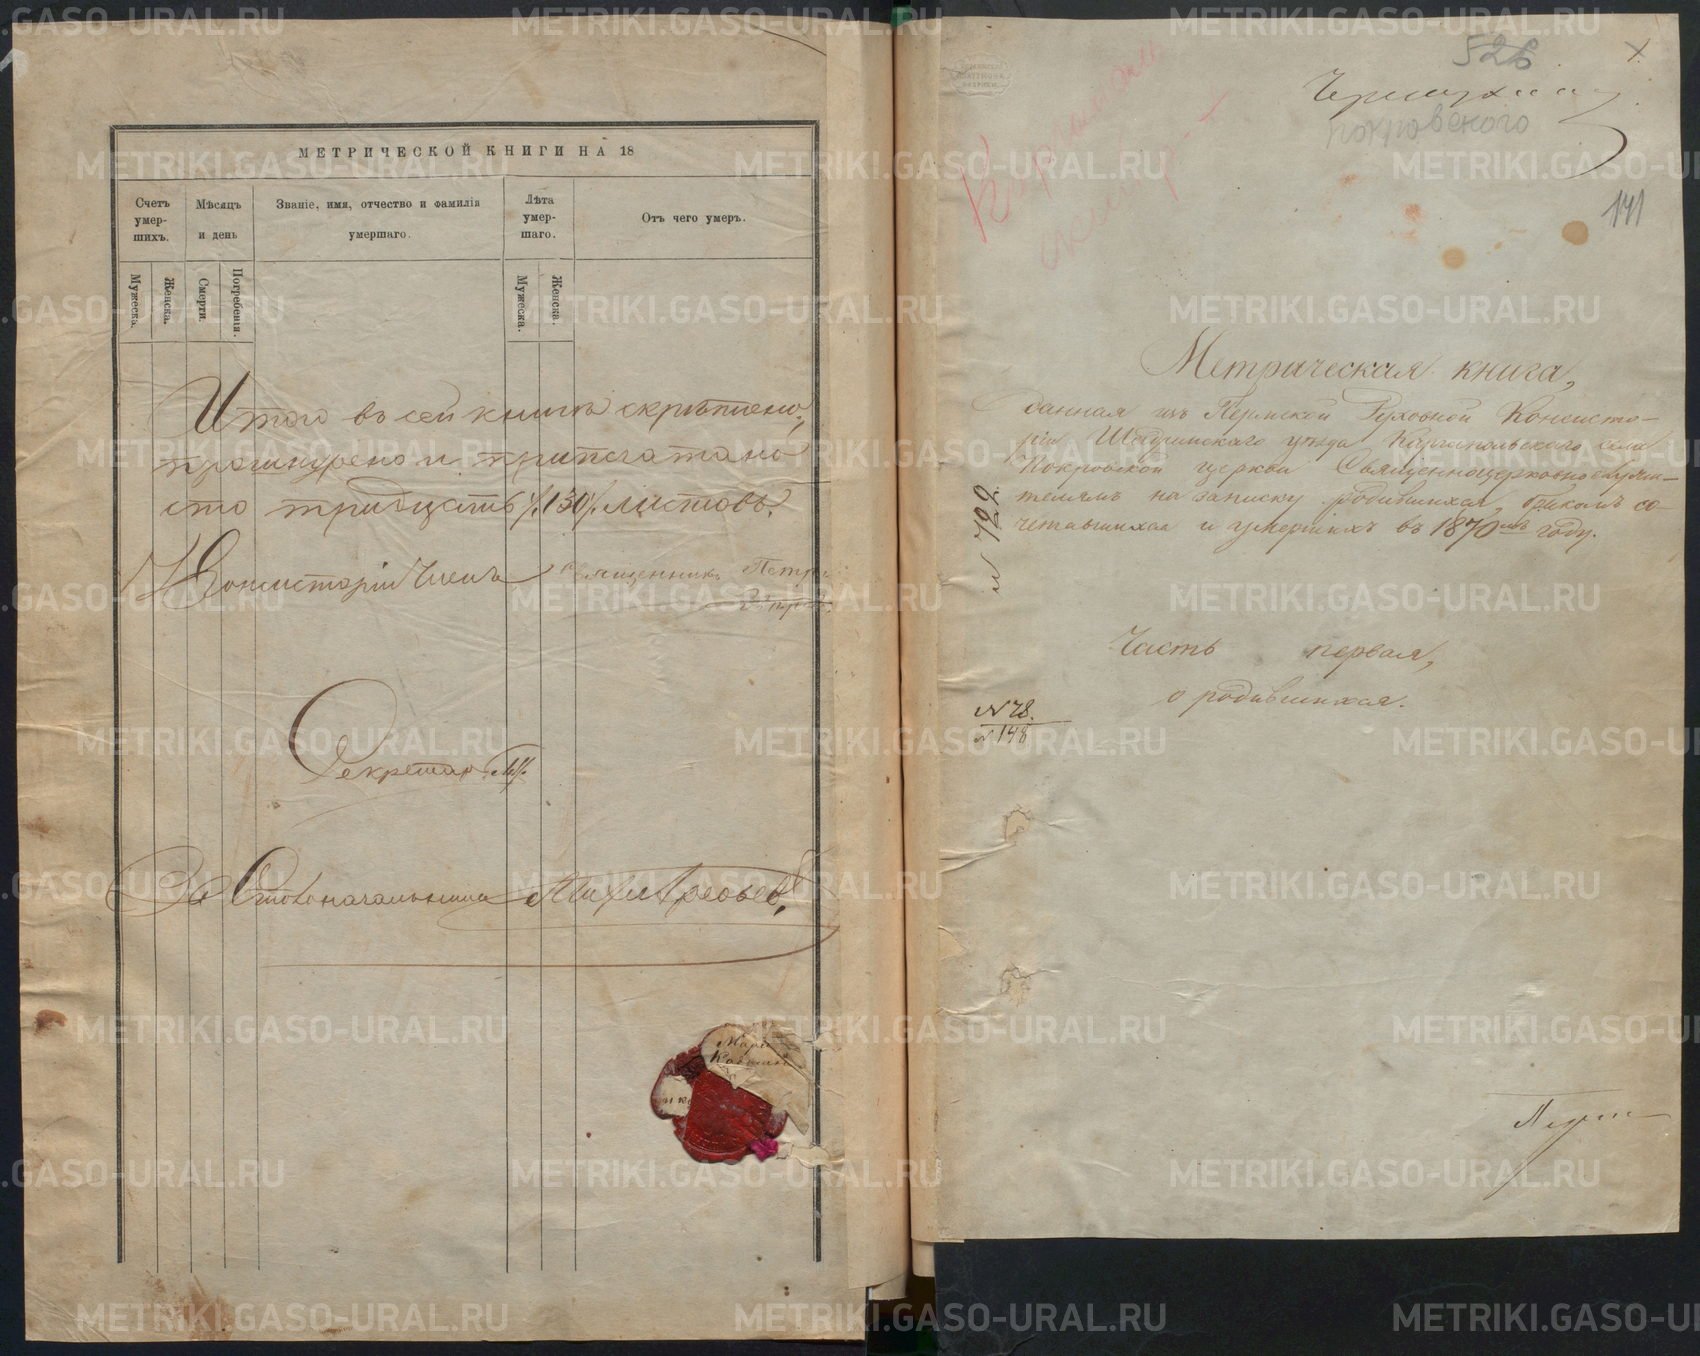 МЕТРИЧЕСКОЙ КНИГИ НА 18
Счетъ умер-шихъ.
Мѣсяцъ и день
Званіе, имя, отчество и фамилія умершаго.
Лѣта умер-шаго.
Отъ чего умеръ.
Мужеска.
Женска.
Смерти.
Погребенія.
Мужеска.
Женска.
Итого въ сей книгѣ скрѣплено,
прошнурено и припечатано
сто тридцать /.130/. листовъ.
Консисторіи Членъ Священникъ Петръ
Секретарь
Столоначальника
528
покровского
141
Метрическая книга,
данная изъ Пермской Духовной Консисто-
ріи Шадринскаго уѣзда Каргапольскаго села
Покровской церкви Священноцерковнослужи-
телямъ на записку родившихся, бракомъ со-
четавшихся и умершихъ въ 1870мъ году.
№ 722
Часть первая,
о родившихся.
№ 78.
№ 148
METRIKI.GASO-URAL.RU